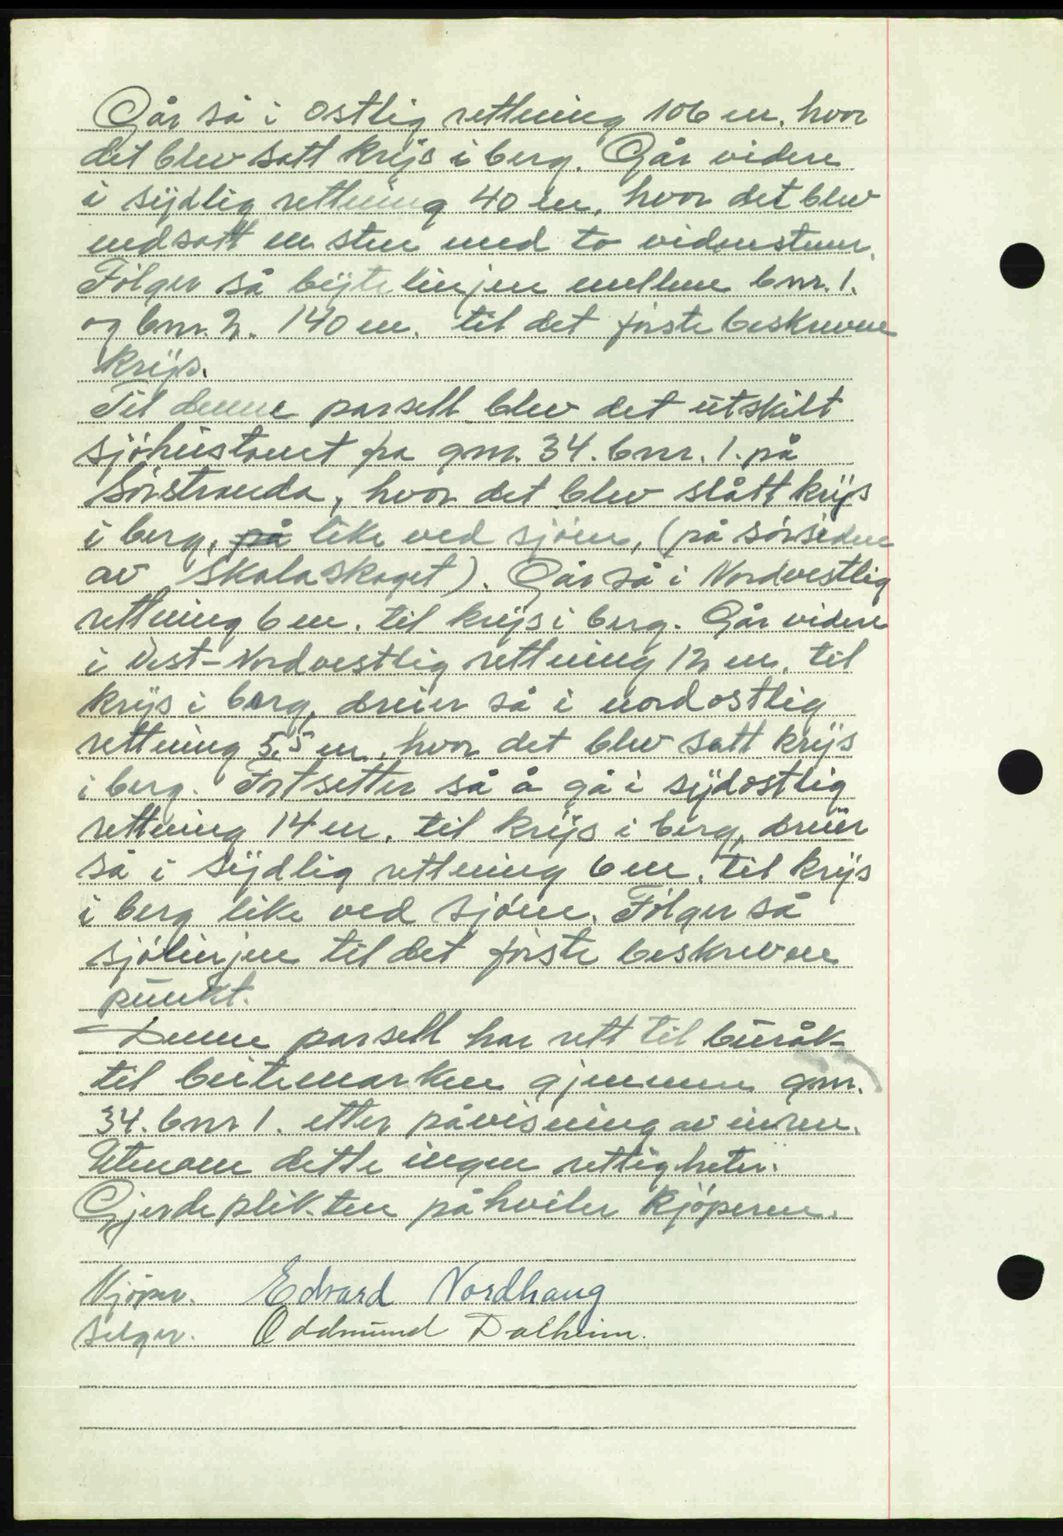 Går så i østlig rettning 106 m. hvor
det blev satt krys i berg. Går videre
i sydlig rettning 40 m. hvor det blev
nedsatt en sten med to vidnestener.
Følger så bytelinjen mellem bnr. 1.
og bnr. 2. 140 m. til det første beskrevne
krys.
Til denne parsell blev det utskilt
sjøhustomt fra gnr. 34. bnr. 1. på
Sørstranda, hvor det blev slått krys
i berg, på like ved sjøen, (på sørsiden
av Skalaskaget). Går så i Nordvestlig
rettning 6 m. til krys i berg. Går videre
i Vest-Nordvestlig rettning 12 m. til
krys i berg, dreier så i nordostlig
rettning 5,5 m. hvor det blev satt krys
i berg. Fortsetter så å gå i sydostlig
rettning 14 m. til krys i berg, dreier
så i sydlig rettning 6 m. til krys
i berg like ved sjøen. Følger så
sjølinjen til det første beskrevne
punkt.
Denne parsell har rett til buråk-
til beitemarken gjennem gnr.
34. bnr 1. etter påvisning av eieren.
Utenom dette ingen rettigheter.
Gjerdeplikten påhviler kjøperen.
Kjøper. Edvard Nordhaug
Selger. Oddmund Dalheim.